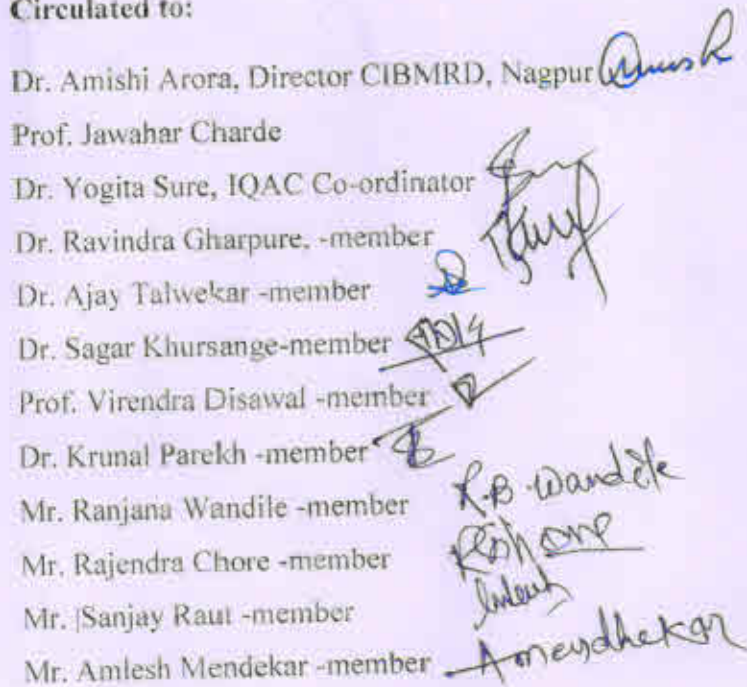 Circulated to:
Dr. Amishi Arora, Director CIBMRD, Nagpur
Prof. Jawahar Charde
Dr. Yogita Sure, IQAC Co-ordinator
Dr. Ravindra Gharpure, -member
Dr. Ajay Talwekar -member
Dr. Sagar Khursange-member
Prof. Virendra Disawal -member
Dr. Krunal Parekh -member
Mr. Ranjana Wandile -member R.B. Wandile
Mr. Rajendra Chore -member
Mr. |Sanjay Raut -member
Mr. Amlesh Mendekar -member